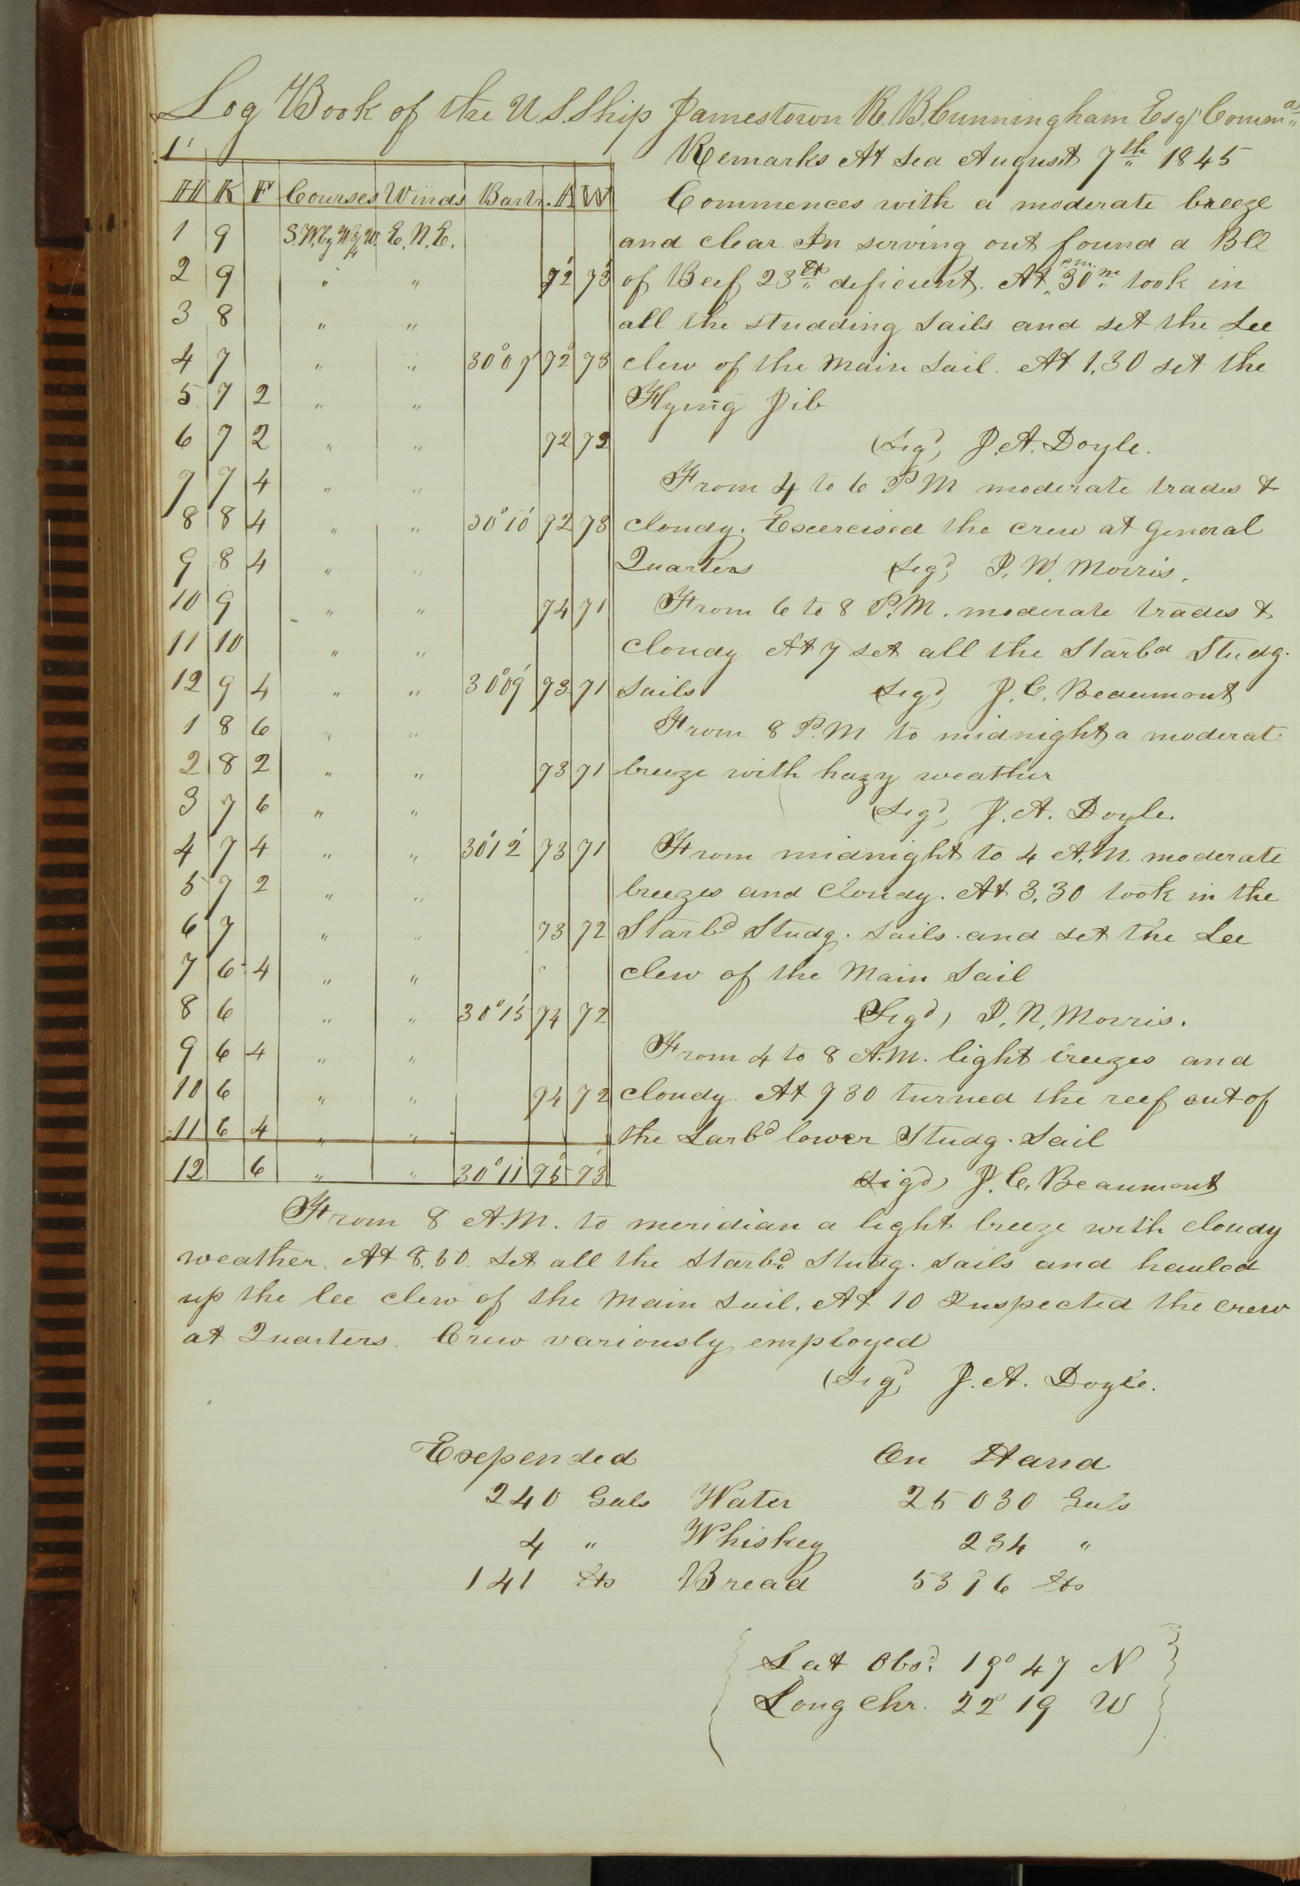 Log Book of the U.S. Ship Jamestown R. B. Cunningham Esqr. Commd
1'
Remarks At Sea August 7th 1845
H K F Courses Winds Bartr. A W
1 9 S.W. by W 3/4 W. E.N.E.
2 9 " " 72 73
3 8 " "
4 7 " " 30°09 72 73
5 7 2 " "
6 7 2 " " 72 72
7 7 4 " "
8 8 4 " " 30°10 72 73
9 8 4 " "
10 9 " " 74 71
11 10 " "
12 9 4 " " 30°09 73 71
1 8 6 " "
2 8 2 " " 73 71
3 7 6 " "
4 7 4 " " 30'12 73 71
5 7 2 " "
6 7 " " 73 72
7 6 4 " "
8 6 " " 30°15 74 72
9 6 4 " "
10 6 " " 74 72
11 6 4 " "
12 6 " " 30°11 75 73
Commences with a moderate breeze
and clear In serving out found a Bll
of Beef 23 lbs deficient. At P.M. 30m took in
all the studding Sails and set the Lee
clew of the Main Sail. At 1,30 set the
Flying Jib
(Sigd, J. A. Doyle.
From 4 to 6 P M moderate trades &
cloudy. Exercised the crew at General
Quarters Sigd, P. W. Morris.
From 6 to 8 P.M. moderate trades &
cloudy At 7 set all the Starbd Studg.
Sails Sigd J. C. Beaumont
From 8 P.M to midnight a moderate
breeze with hazy weather
(Sigd, J. A. Doyle.
From midnight to 4 A.M. moderate
breezes and Cloudy. At 3.30 took in the
Starbd Studg. Sails and set the Lee
clew of the Main Sail
Sigd, P. N. Morris.
From 4 to 8 A.M. light breezes and
cloudy. At 7 30 turned the reef out of
the Larbd lower Studg. Sail
Sigd, J. C. Beaumont
From 8 A.M. to meridian a light breeze with cloudy
weather. At 8.30. Set all the Starbd Studg. Sails and hauled
up the lee clew of the Main Sail. At 10 Inspected the crew
at Quarters. Crew variously employed
(Sigd, J. A. Doyle.
Expended On Hand
240 Gals Water 25030 Gals
4 " Whiskey 234 "
141 lbs Bread 5396 lbs
Lat Obsd. 19° 47 N
Long Chr. 22° 19 W